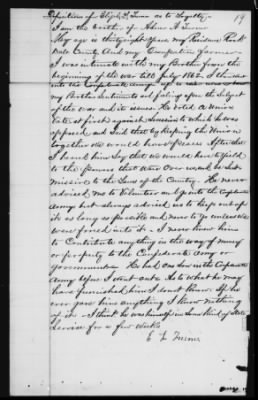 Deposition of Elijah F. Turner as to Loyalty— 19
I am the brother of Abner F. Turner
My age is thirty-five years, My Residence Rock
dale County And my Occupation farmer—
I was intimate with my Brother from the
beginning of the war till July 1862. I then
into the Confederate Army
my Brother's sentiments and feeling upon the subject
of the war and its issues. He voted a Union
ticket at first against Secession to which he was
opposed and said that by keeping the Union
together we would have peace. After this
I heard him Say that we would have to yield
to the powers that were Over us and be Sub
missive to the Laws of the Country. He never
advised me to Volunteer and go into the Confederate
Army but always advised us to keep out of
it as long as possible and never to go unless we
were forced into it. I never knew him
to Contribute anything in the way of money
or property to the Confederate Army or
government. He had one Son in the Confederate
Army before I went out. As to what he may
have furnished him I don't know. If he
ever gave him anything I know nothing
of it. I think he was himself in Some kind of State
Service for a few weeks
E F Turner